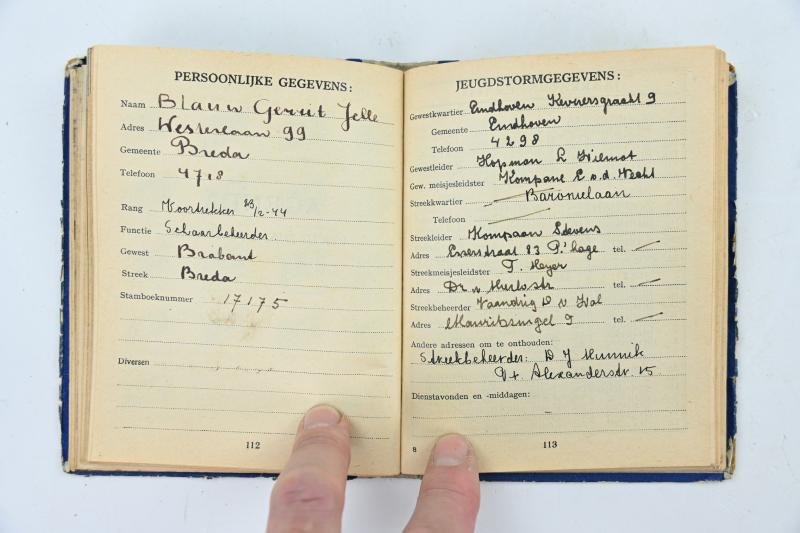 PERSOONLIJKE GEGEVENS:
Naam Blauw Gerrit Jelle
Adres Westerlaan 99
Gemeente Breda
Telefoon 4718
Rang Voortrekker 23/2-44
Functie Schaarbeheerder
Gewest Brabant
Streek Breda
Stamboeknummer 17175
Diversen
112
JEUGDSTORMGEGEVENS:
Gewestkwartier Eindhoven 9
Gemeente Eindhoven
Telefoon 4298
Gewestleider Hopman L Wilmot
Gew. meisjesleidster Kompane E v.d. Vecht
Streekkwartier Baronielaan
Telefoon
Streekleider Kompaan Stevens
Adres 83 P.'hage tel. —
Streekmeisjesleidster T. Meyer
Adres Dr v tel. —
Streekbeheerder Vaandrig D v Wal
Adres Mauritssingel 9 tel. —
Andere adressen om te onthouden:
Streekbeheerder: D J Munnik
Pr Alexanderstr. 15
Dienstavonden en -middagen:
8
113